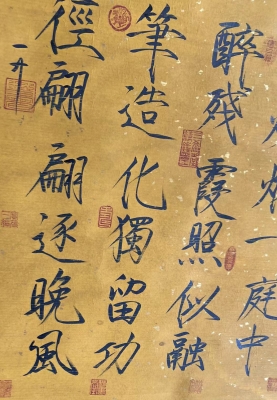 一庭中
醉殘霞照似融
筆造化獨留功
徑翩翩逐晚風